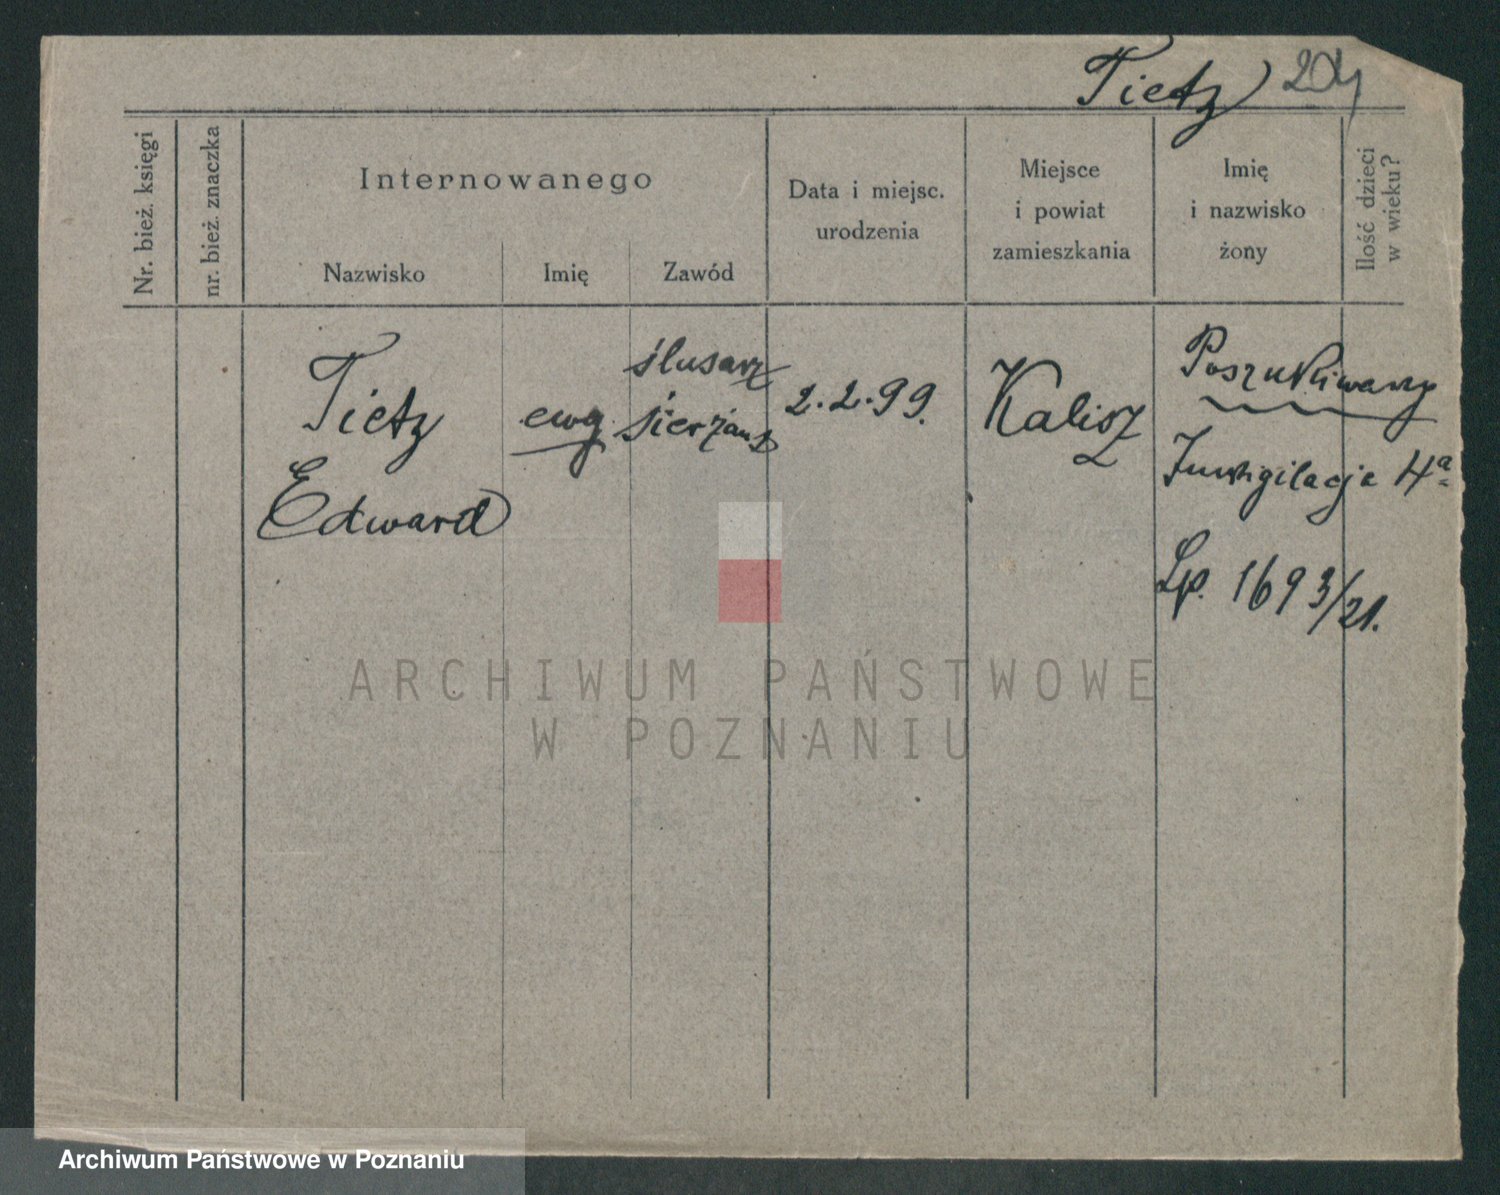 Tietz 204
Nr. bież. księgi
nr. bież. znaczka
Internowanego
Nazwisko
Imię
Zawód
Data i miejsc.
urodzenia
Miejsce
i powiat
zamieszkania
Imię
i nazwisko
żony
Ilość dzieci
w wieku?
Tietz
Edward
ewg
ślusarz
sierżant
2.2.99.
Kalisz
Poszukiwany
Inwigilacja 4a
Lp. 1693/21.
ARCHIWUM PAŃSTWOWE
W POZNANIU
Archiwum Państwowe w Poznaniu